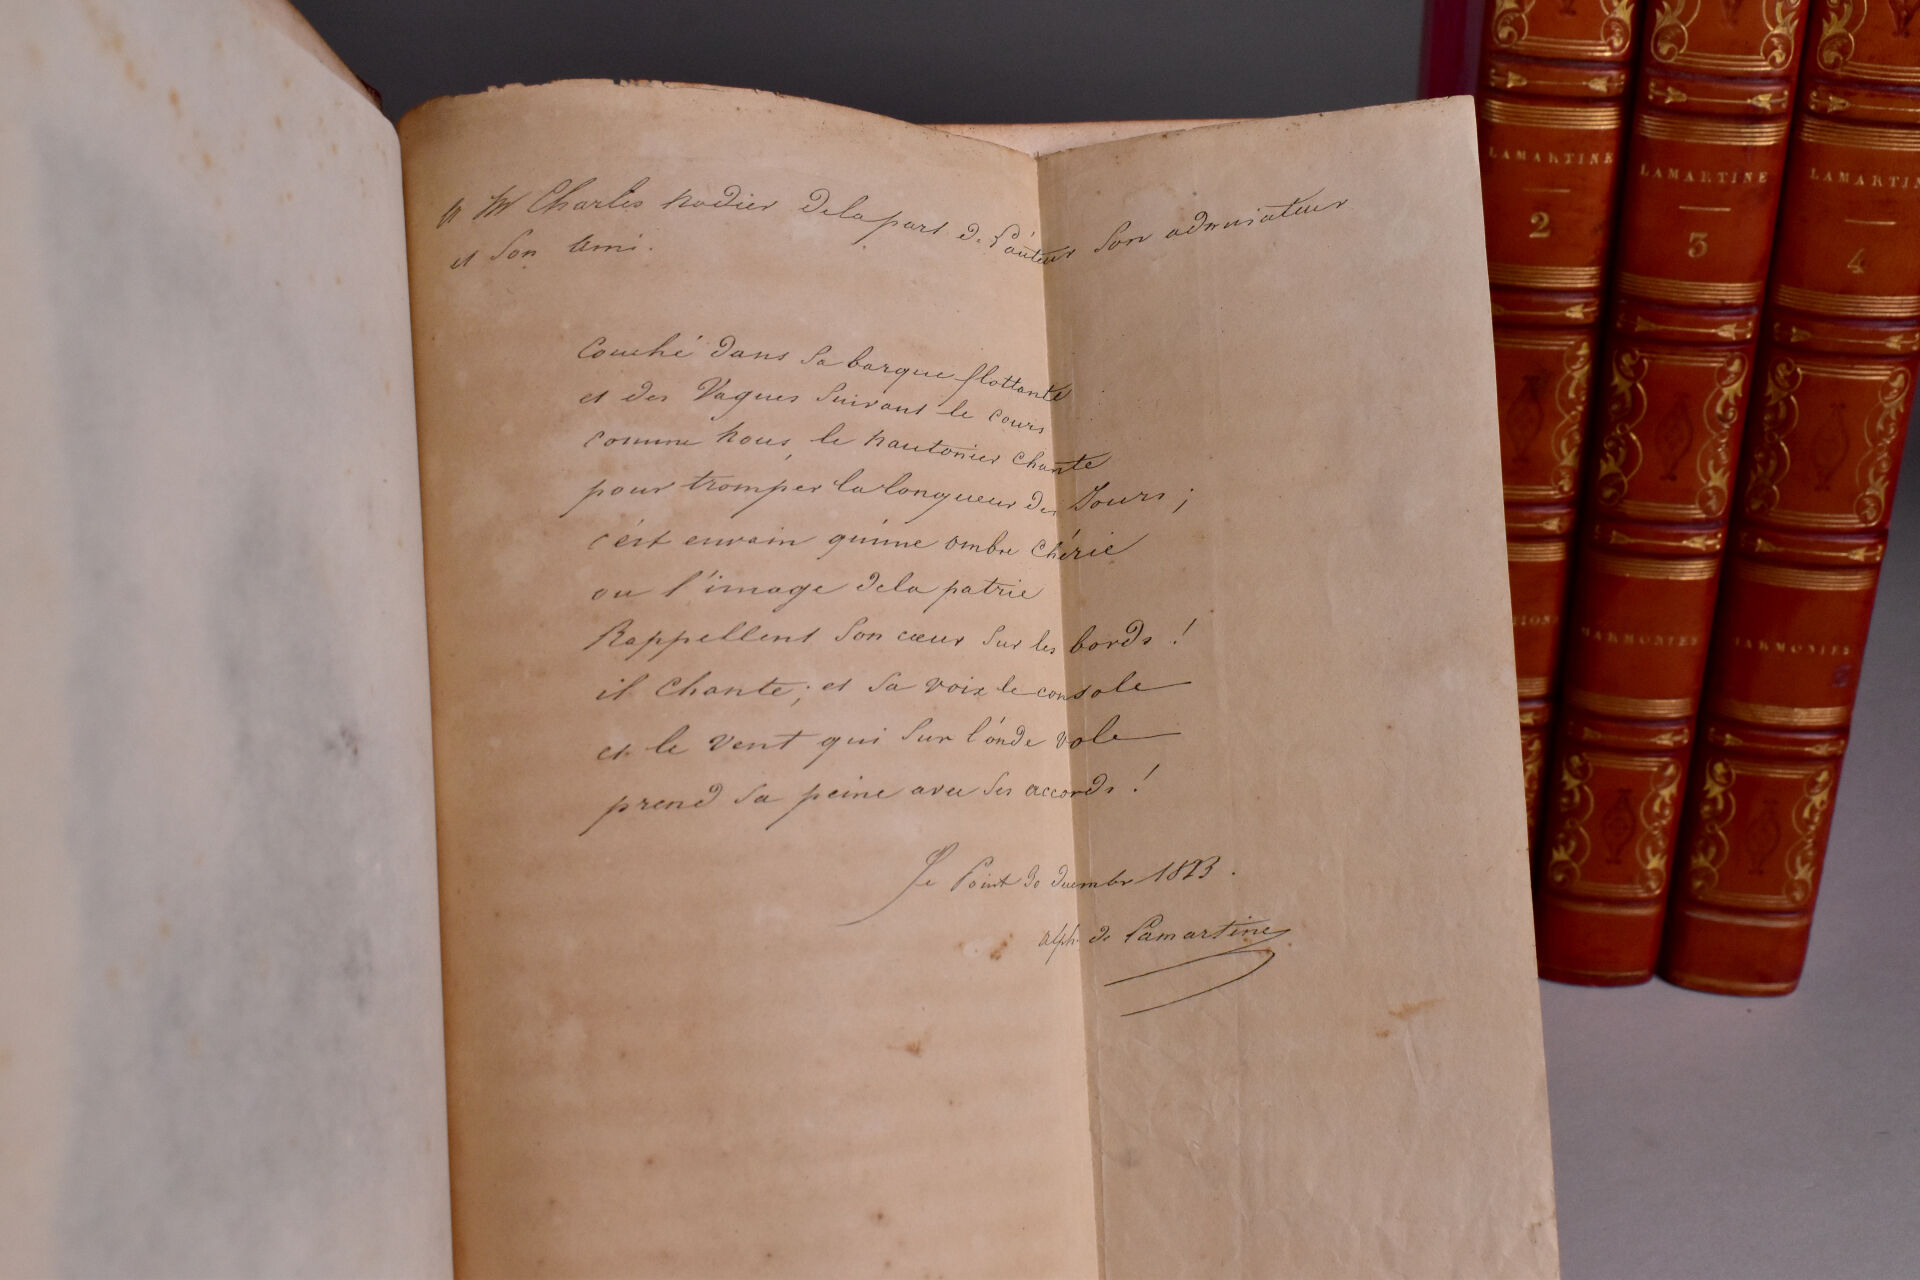 a Mr Charles nodier dela part de l'auteur son admirateur
et son ami.
Couché dans sa barque flottante
et des Vagues suivant le cours
comme nous, le nautonier chante
pour tromper la longueur des Jours ;
c'est envain qu'une ombre chérie
ou l'image dela patrie
Rappellent son cœur sur les bords !
il chante ; et sa voix le console
et le vent qui sur l'onde vole
prend sa peine avec ses accords !
St Point 30 decembre 1823.
alph. de Lamartine
LAMARTINE
2
TIONS
LAMARTINE
3
HARMONIES
LAMARTIN
4
HARMONIES